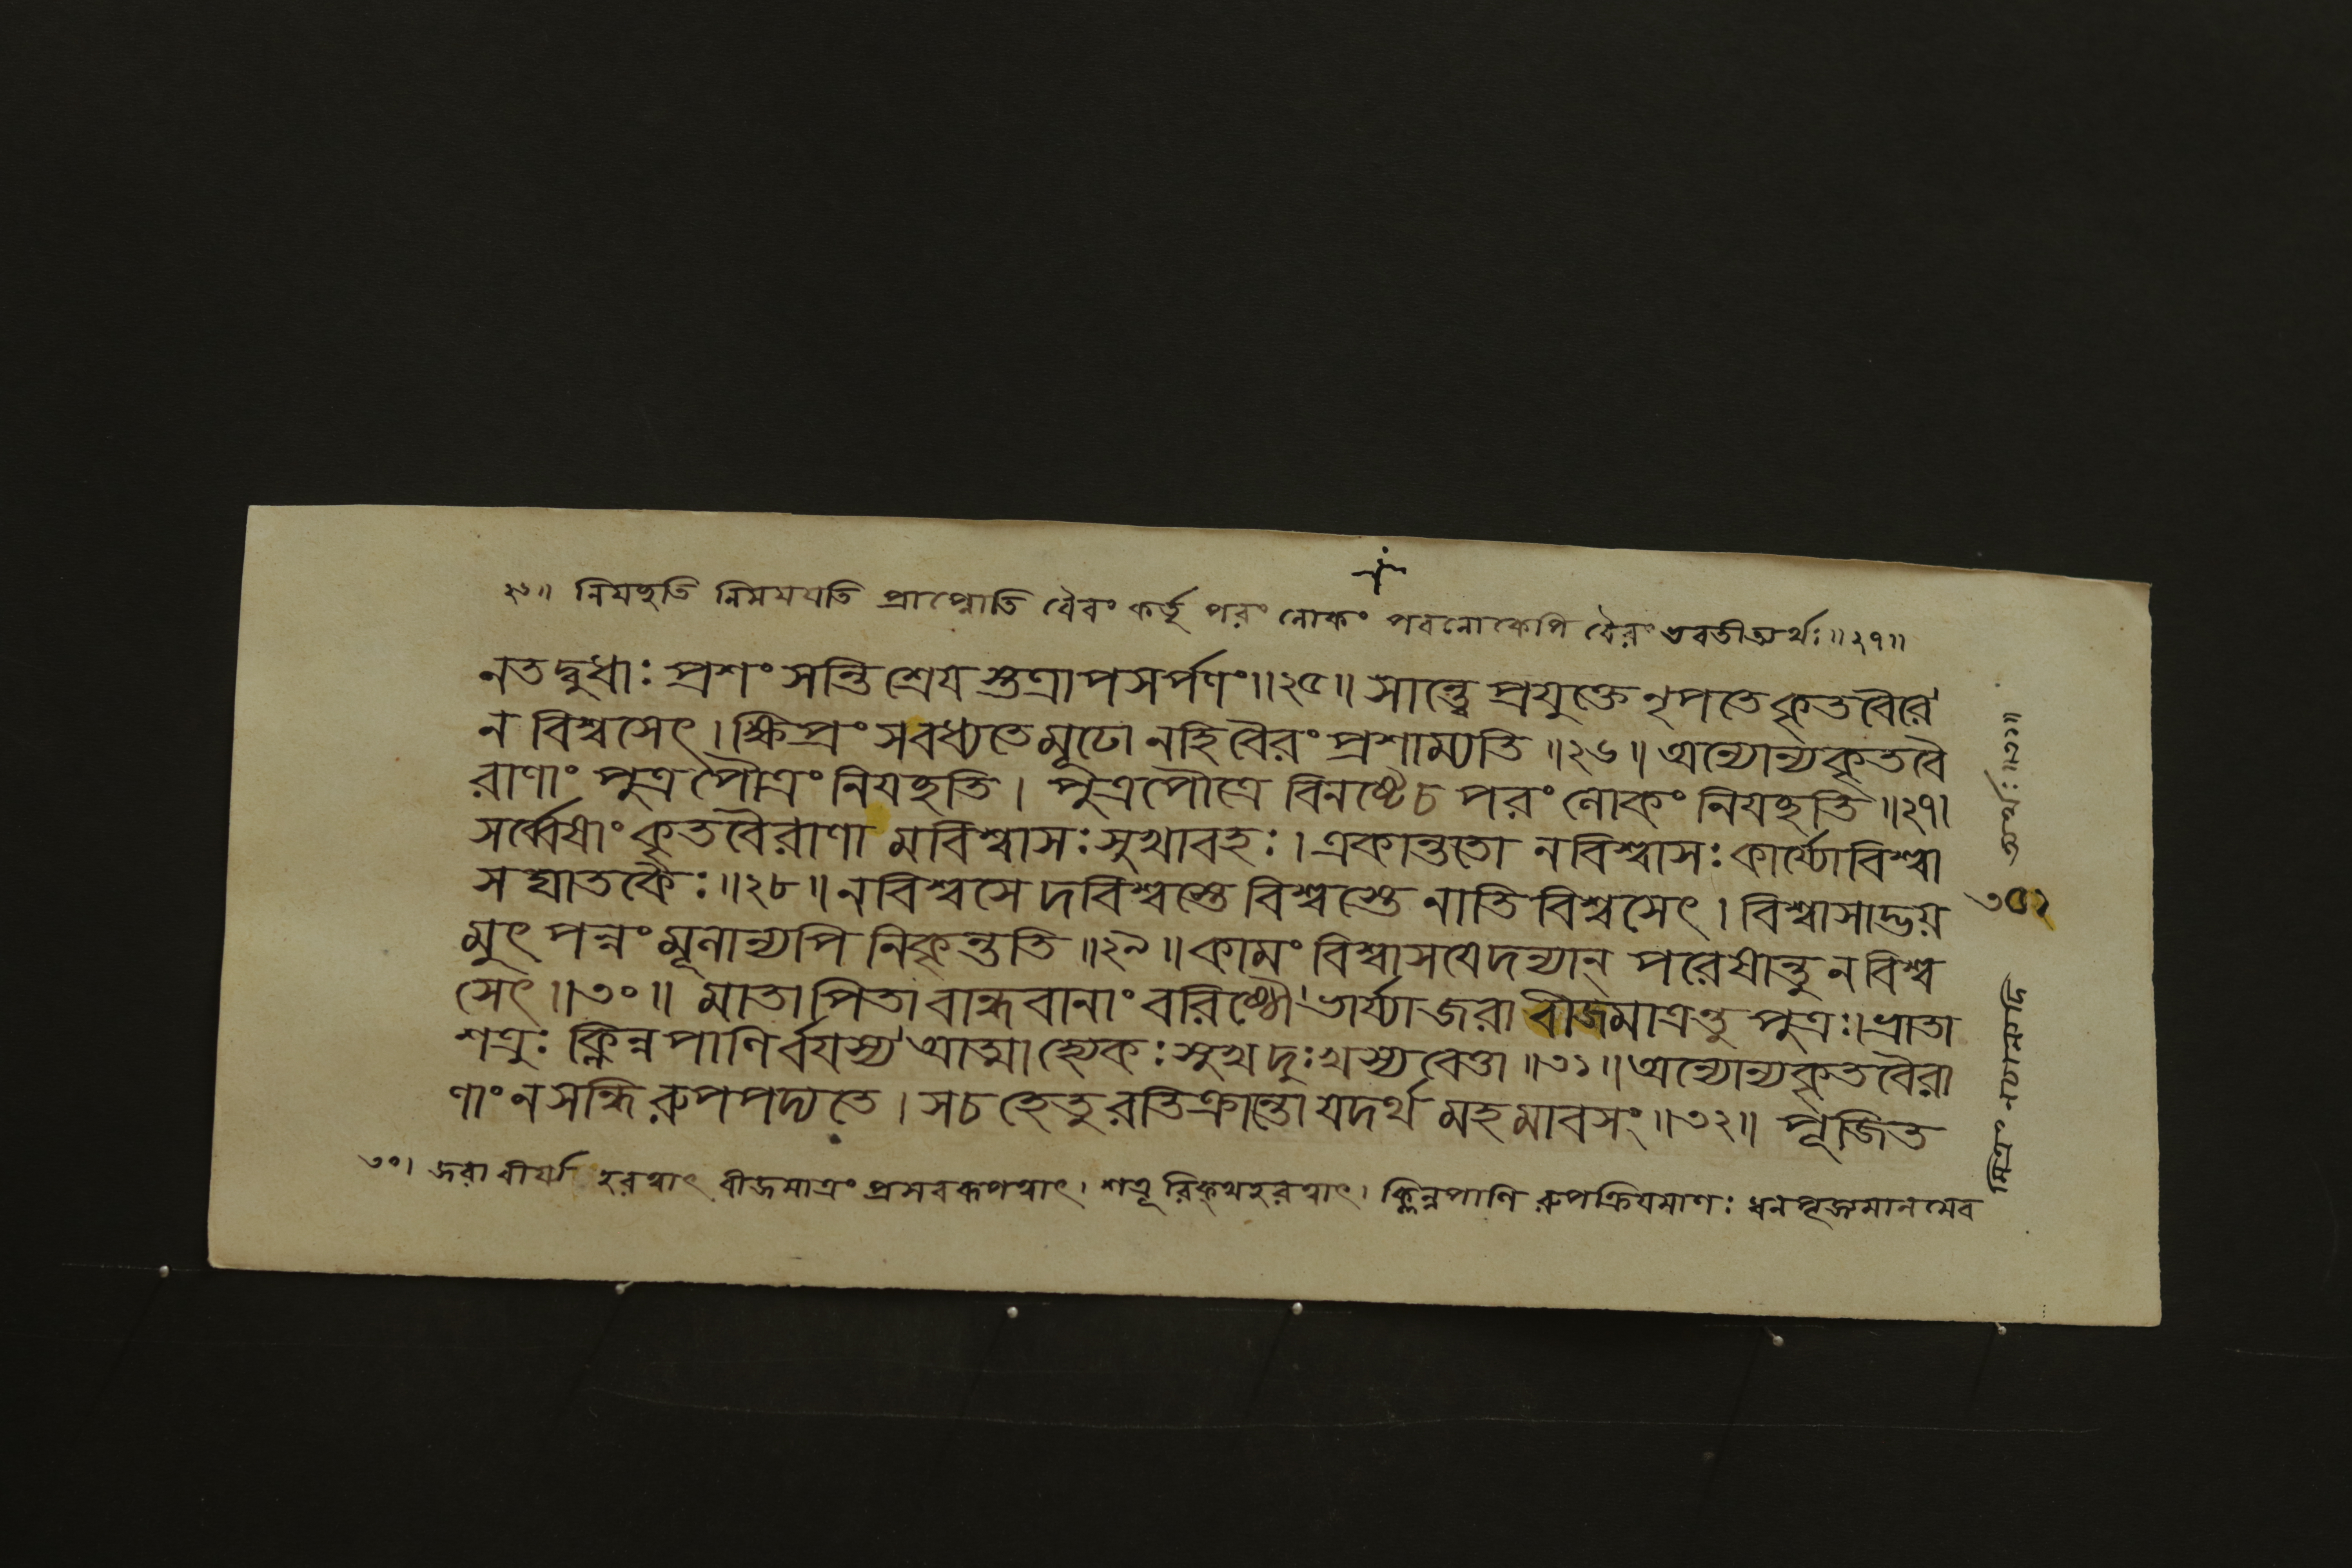 ২৬॥ নিযচ্ছতি নিগময়তি প্রাপ্নোতি বৈরং কর্তৃ পরং লোকং পরলোকেপি বৈরং ভবতীত্যর্থঃ॥২৭॥
নতদ্বুধাঃ প্রশংসন্তি শ্রেয স্তত্রাপসর্পণং॥২৫॥ সান্ত্বে প্রযুক্তে নৃপতে কৃতবৈরে
ন বিশ্বসেৎ। ক্ষিপ্রং সবধ্যতে মূঢো নহি বৈরং প্রশাম্যতি ॥২৬॥ অন্যোন্যকৃতবৈ
রাণাং পুত্রপৌত্রং নিযচ্ছতি। পুত্রপৌত্রে বিনষ্টেচ পরং লোকং নিযচ্ছতি ॥২৭।
সর্ব্বেষাং কৃতবৈরাণা মবিশ্বাসঃ সুখাবহঃ। একান্ততো নবিশ্বাসঃ কার্য্যো বিশ্বা
সঘাতকৈঃ॥২৮॥ ন বিশ্বসে দবিশ্বস্তে বিশ্বস্তে নাতি বিশ্বসেৎ। বিশ্বাসাদ্ভয়
মুৎপন্নং মূলান্যপি নিকৃন্ততি ॥২৯॥ কামং বিশ্বাসযেদন্যান্ পরেষান্তু ন বিশ্ব
সেৎ॥৩০॥ মাতাপিতা বান্ধবানাং বরিষ্ঠৌ ভার্য্যা জরা বীজমাত্রন্তু পুত্রঃ। ভ্রাতা
শত্রুঃ ক্লিন্নপাণির্বযস্য আত্মা হ্যেকঃ সুখদুঃখস্য বেত্তা ॥৩১॥ অন্যোন্যকৃতবৈরা
ণাং ন সন্ধি রুপপদ্যতে। সচ হেতু রতিক্রান্তো যদর্থ মহমাবসং॥৩২॥ পূজিত
৩০। জরা বীর্য্য হরত্বাৎ বীজমাত্রং প্রসবরূপত্বাৎ। শত্রূ রিক্‌থহরত্বাৎ। ক্লিন্নপাণি রুপক্রিযমাণঃ ধন গৃহ্ণমানমেব
মিত্রং
অর্থঃ॥৩১॥
৩৫২